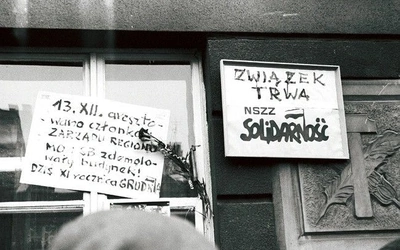 13. XII. areszto-
wano członków
ZARZĄDU REGIONU
MO i SB zdemolo-
wały budynek!
DZIŚ XI rocznica GRUDNIA
ZWIĄZEK
TRWA
NSZZ
SOLIDARNOŚĆ